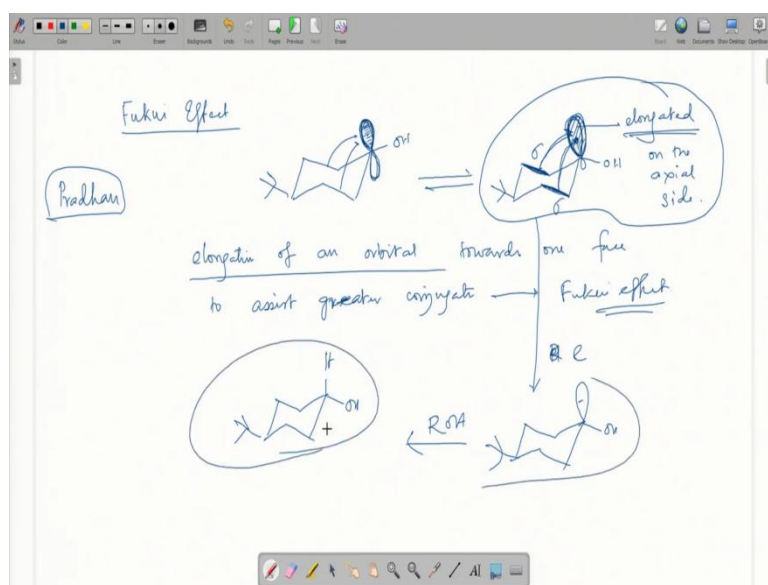 Status
Color
Line
Eraser
Backgrounds
Undo
Redo
Pages
Previous
Next
Erase
Board
Web
Documents
Show Desktop
OpenBoard
Fukui Effect
OH
elongated
on the
axial
side.
σ
OH
σ
Pradhan
elongation of an orbital towards one face
to assist greater conjugatn → Fukui effect
e
H
OH
ROH
-
OH
AI